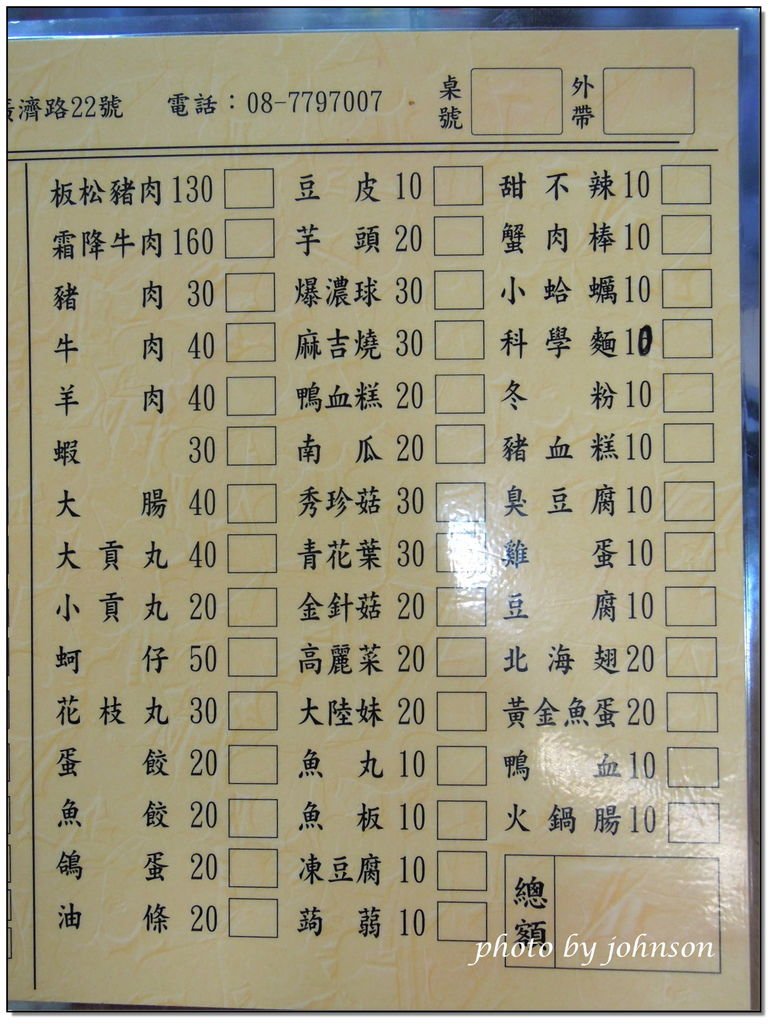 廣濟路22號 電話：08-7797007 桌號 外帶
板松豬肉 130 豆皮 10 甜不辣 10
霜降牛肉 160 芋頭 20 蟹肉棒 10
豬肉 30 爆濃球 30 小蛤蠣 10
牛肉 40 麻吉燒 30 科學麵 10
羊肉 40 鴨血糕 20 冬粉 10
蝦 30 南瓜 20 豬血糕 10
大腸 40 秀珍菇 30 臭豆腐 10
大貢丸 40 青花葉 30 雞蛋 10
小貢丸 20 金針菇 20 豆腐 10
蚵仔 50 高麗菜 20 北海翅 20
花枝丸 30 大陸妹 20 黃金魚蛋 20
蛋餃 20 魚丸 10 鴨血 10
魚餃 20 魚板 10 火鍋腸 10
鴿蛋 20 凍豆腐 10
油條 20 蒟蒻 10
總額
photo by johnson